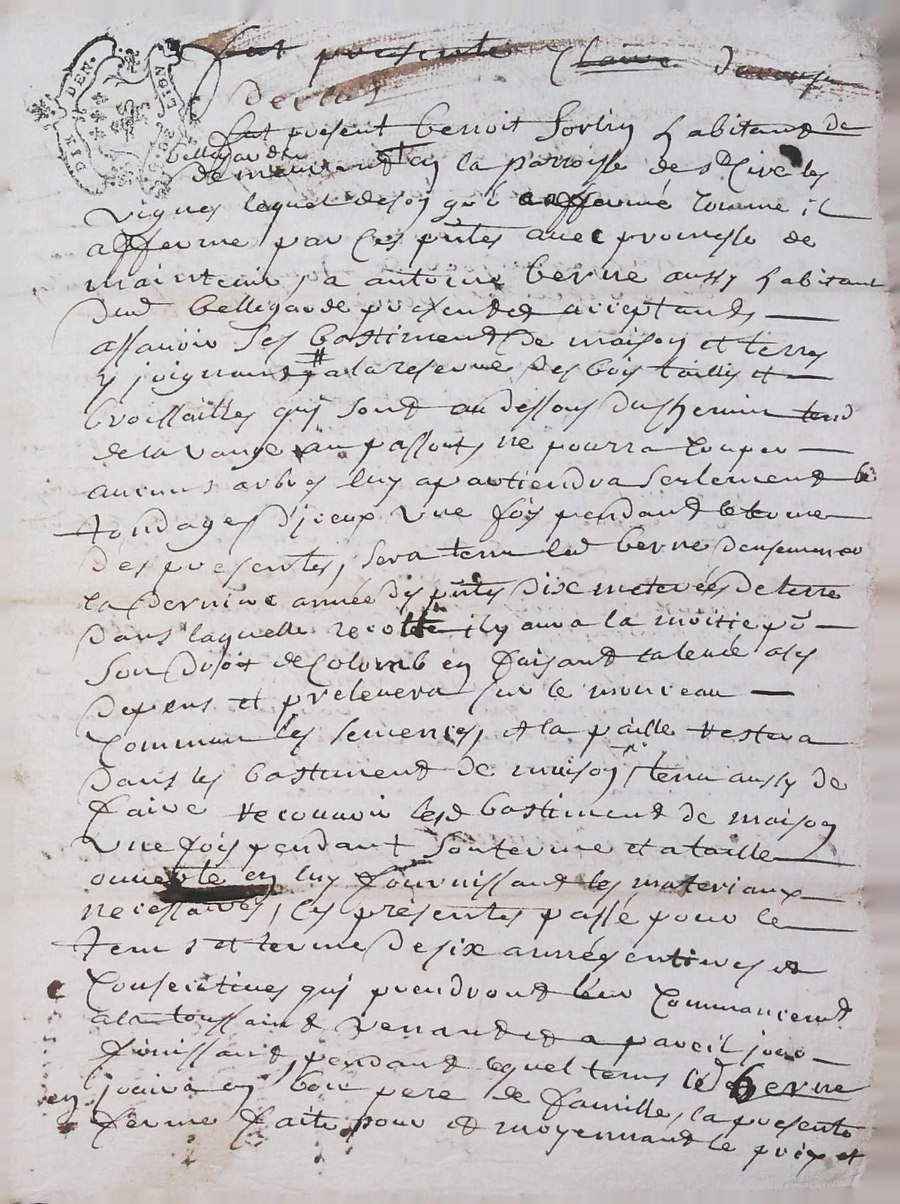 DIX DEN.
LION
fut présente Claire
fut présent benoit Sorlin habitant de
bellegarde
en la parroisse de st Cire les
vignes lequel de son gré affermé comme il
afferme par ces pntes avec promesse de
maintenir a antoine berne aussy habitant
dud bellegarde present et acceptant
assavoir ses bastiment de maison et terres
y joignant # a la reserve des bois taillis et
broissailles qui sont au dessous du chemin tend
de la ne pourra couper
aucuns arbres luy apartiendra seulement le
tondages d'jceux une fois pendant le terme
des presentes, sera tenu led berne d'ensemencer
la derniere année des pntes dix meterées de terre
dans laquelle recolte il y aura la moitie pr
son droit de Colomb en faisant la levée a ses
depens et prelevera sur le monceau
commun les semences, et la paille restera
dans les bastiment de maison, tenu aussy de
faire recouvrir lesd bastiment de maison
une fois pendant son terme et a taille
ouverte en luy fournissant les materiaux
necessaires, les présentes passé pour le
tems et terme de six années entieres et
consecutives qui prendront leur commancemt
a la toussaint venant et a pareil jour
finissant, pendant lequel tems led berne
en jouira en bon pere de famille, la presente
ferme faite pour et moyennant le prix et